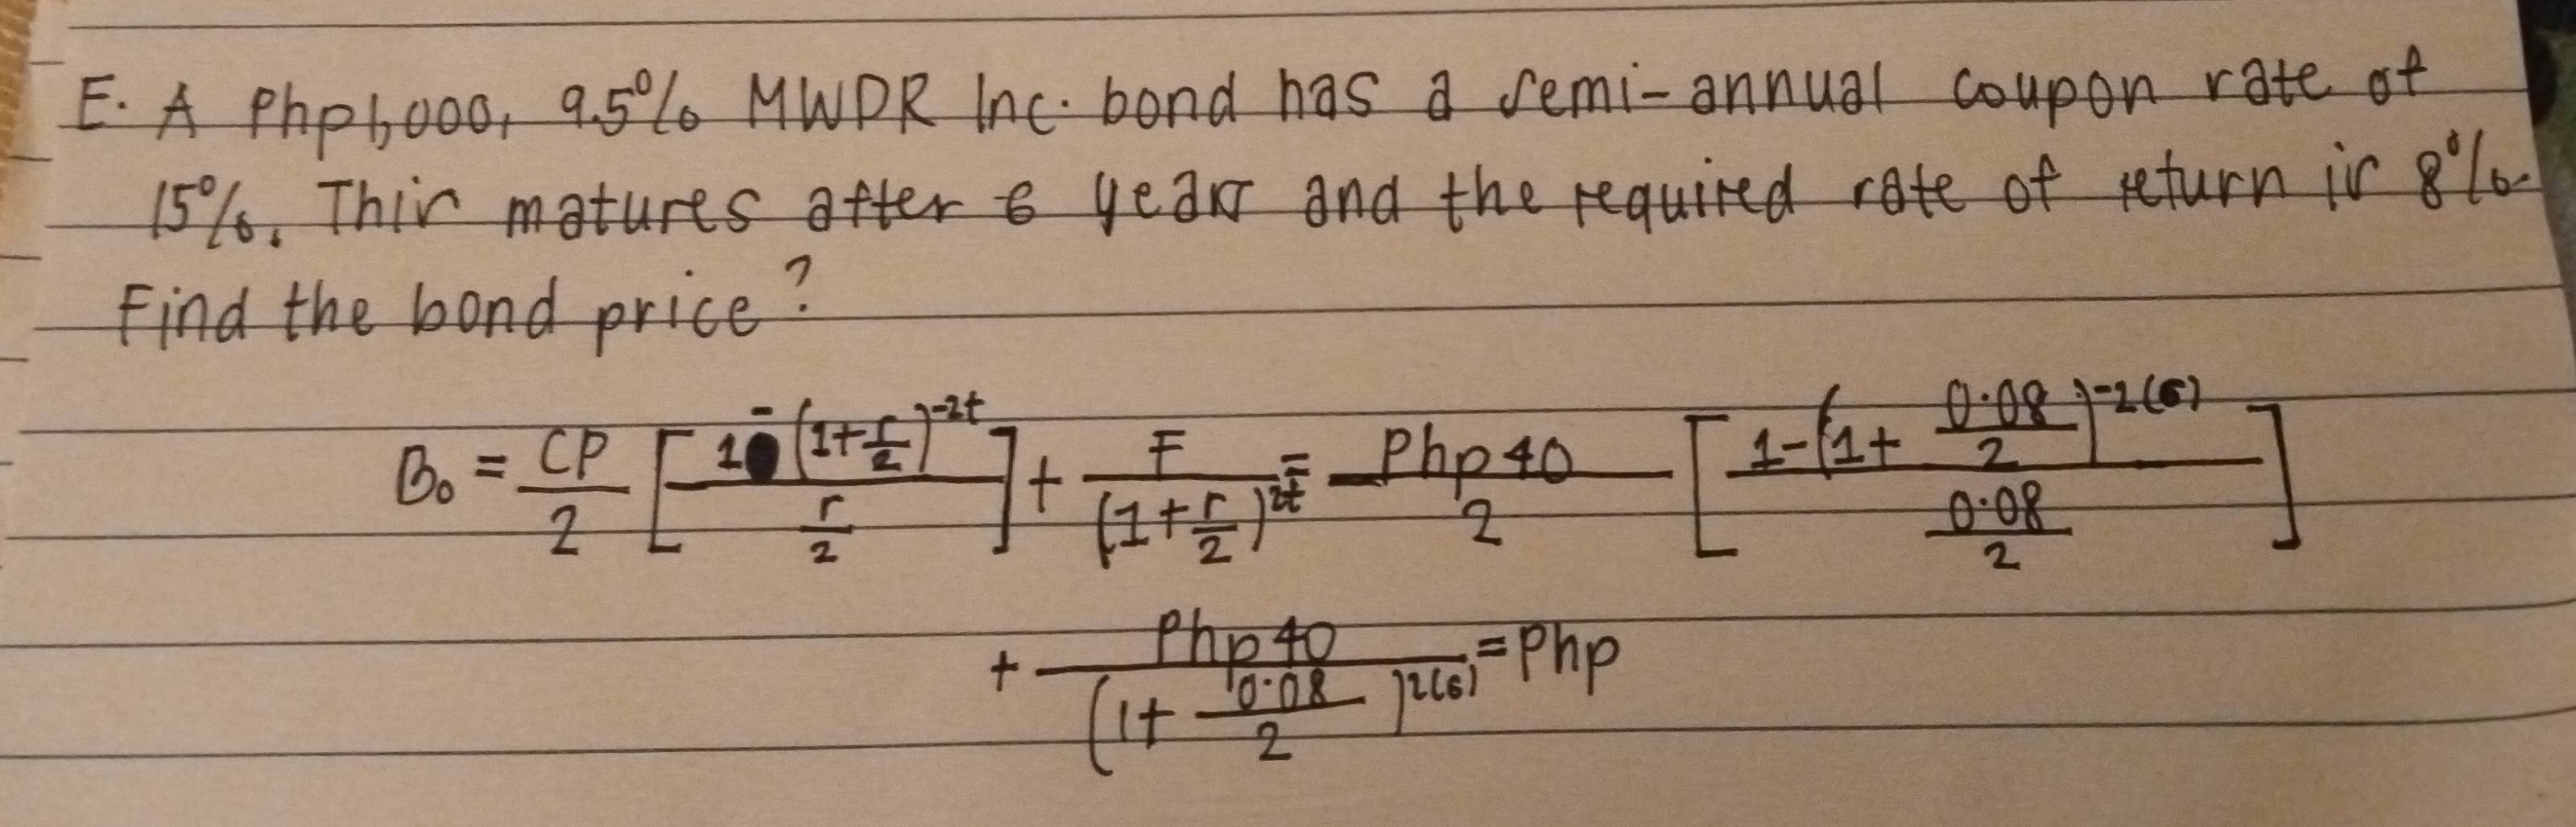 E. A Php1,000, 9.5% MWDR Inc. bond has a semi-annual coupon rate of
15%. This matures after 6 years and the required rate of return is 8%.
Find the bond price?
B₀ = CP/2 [1-(1+r/2)^-2t / r/2] + F/(1+r/2)^2t = Php40/2 [1-(1+0.08/2)^-2(6) / 0.08/2]
+ Php40/(1+0.08/2)^2(6) = Php